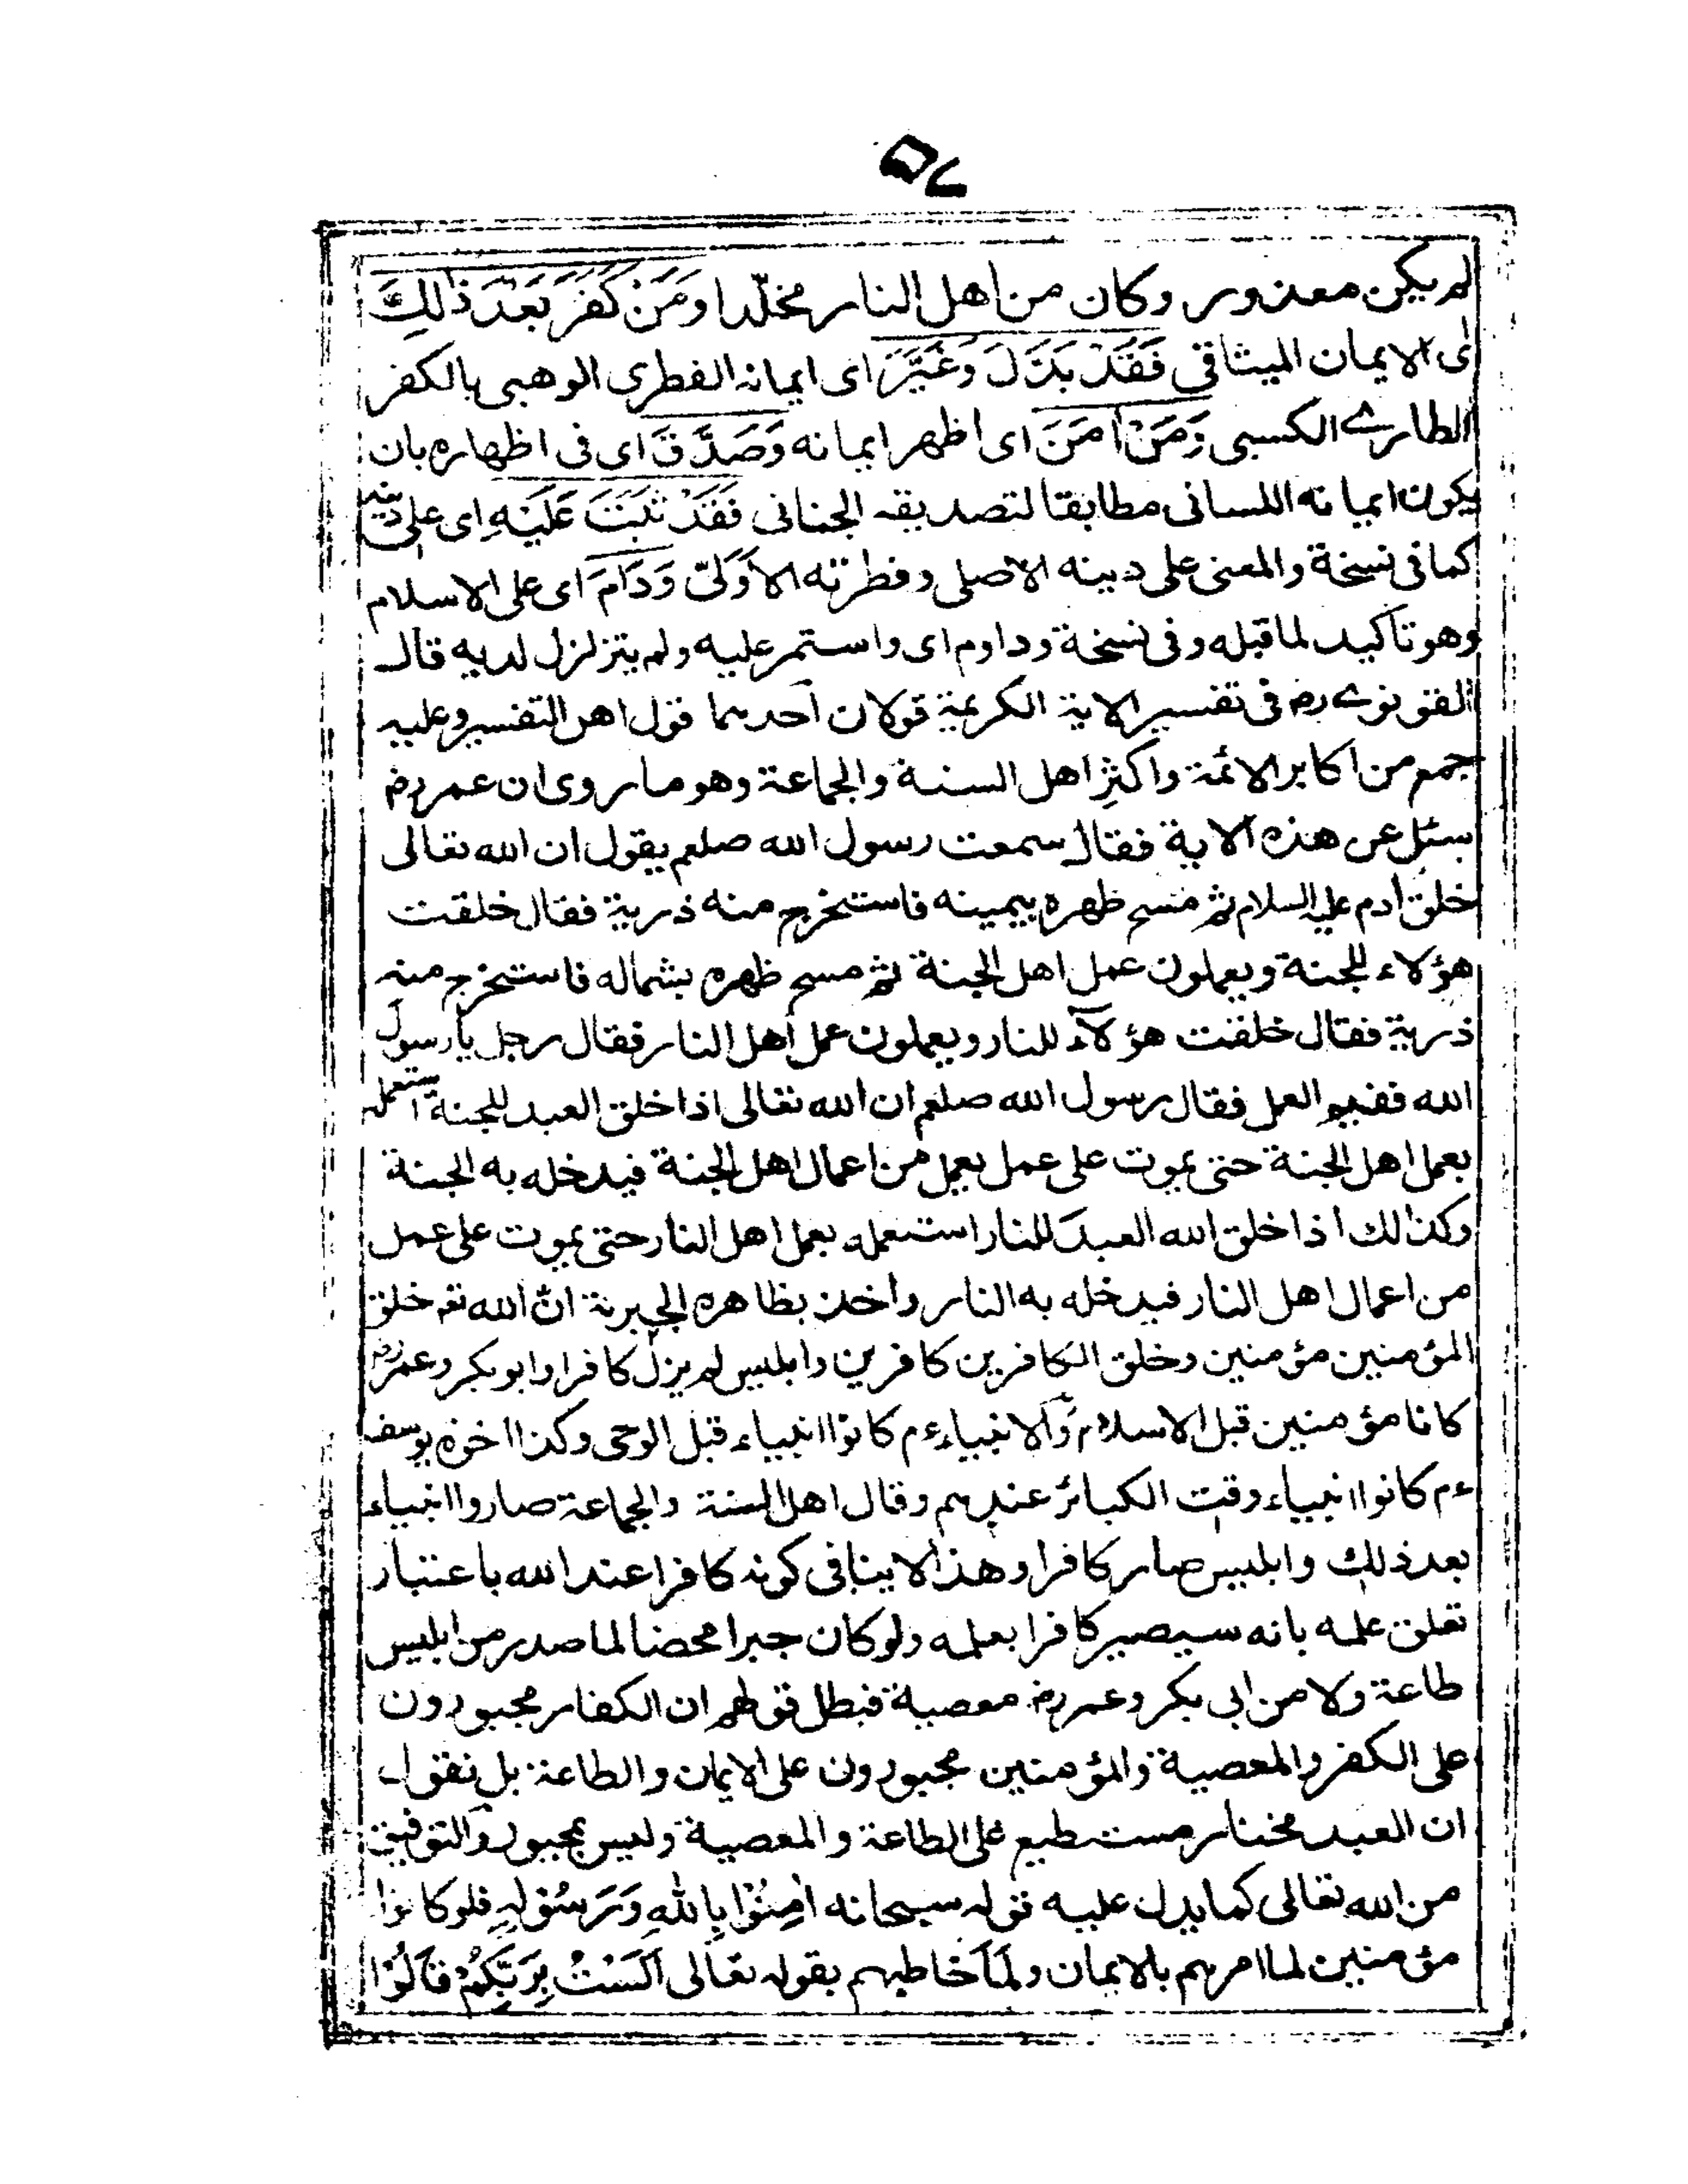 ٥٧
لم يكن معذور وكان من اهل النار مخلّدا وَمَنْ كَفَرَ بَعْدَ ذٰلِكَ
اى الايمان الميثاقي فَقَدْ بَدَّلَ وَغَيَّرَ اى ايمانه الفطرى الوهبى بالكفر
الطارے الكسبى وَمَنْ اٰمَنَ اى اظهر ايمانه وَصَدَّقَ اى فى اظهاره بان
يكون ايمانه اللسانى مطابقا لتصديقه الجنانى فَقَدْ ثَبَتَ عَلَيْهِ اى على دينه
كما فى نسخة والمعنى على دينه الاصلى وفطرته الاَوَلىّ وَدَامَ اى على الاسلام
وهو تاكيد لما قبله وفى نسخة وداوم اى واستمر عليه ولم يتزلزل لديه قال
القونوے رح فى تفسير الاية الكريمة قولان احدهما قول اهل التفسير وعليه
جمع من اكابر الائمة واكثر اهل السنة والجماعة وهو ما روى ان عمر رض
سئل عن هذه الاية فقال سمعت رسول الله صلعم يقول ان الله تعالى
خلق ادم عليه السلام ثم مسح ظهره بيمينه فاستخرج منه ذرية فقال خلقت
هؤلاء للجنة ويعملون عمل اهل الجنة ثم مسح ظهره بشماله فاستخرج منه
ذرية فقال خلقت هؤلآء للنار ويعملون عمل اهل النار فقال رجل يا رسول
الله ففيم العمل فقال رسول الله صلعم ان الله تعالى اذا خلق العبد للجنة استعمله
بعمل اهل الجنة حتى يموت على عمل بعمل من اعمال اهل الجنة فيدخله به الجنة
وكذلك اذا خلق الله العبد للنار استعمله بعمل اهل النار حتى يموت على عمل
من اعمال اهل النار فيدخله به النار واخذ بظاهره الجبرية انّ الله تع خلق
المؤمنين مؤمنين وخلق الكافرين كافرين وابليس لم يزل كافرا وابو بكر وعمر رض
كانا مؤمنين قبل الاسلام والانبياء ءم كانوا انبياء قبل الوحى وكذا اخوة يوسف
ءم كانوا انبياء وقت الكبائر عندهم وقال اهل السنة والجماعة صاروا انبياء
بعد ذلك وابليس صار كافرا وهذا لا ينافى كونه كافرا عند الله باعتبار
تعلق علمه بانه سيصير كافرا بعلمه ولو كان جبرا محضا لما صدر من ابليس
طاعة ولا من ابى بكر وعمر رض معصية فبطل قولهم ان الكفار مجبورون
على الكفر والمعصية والمؤمنين مجبورون على الايمان والطاعة بل نقول
ان العبد مختار مستطيع على الطاعة والمعصية وليس بمجبور والتوفيق
من الله تعالى كما يدل عليه قوله سبحانه اٰمِنُوْا بِاللهِ وَرَسُوْلِهٖ فلو كانوا
مؤمنين لما امرهم بالايمان ولما خاطبهم بقوله تعالى اَلَسْتُ بِرَبِّكُمْ قَالُوْا